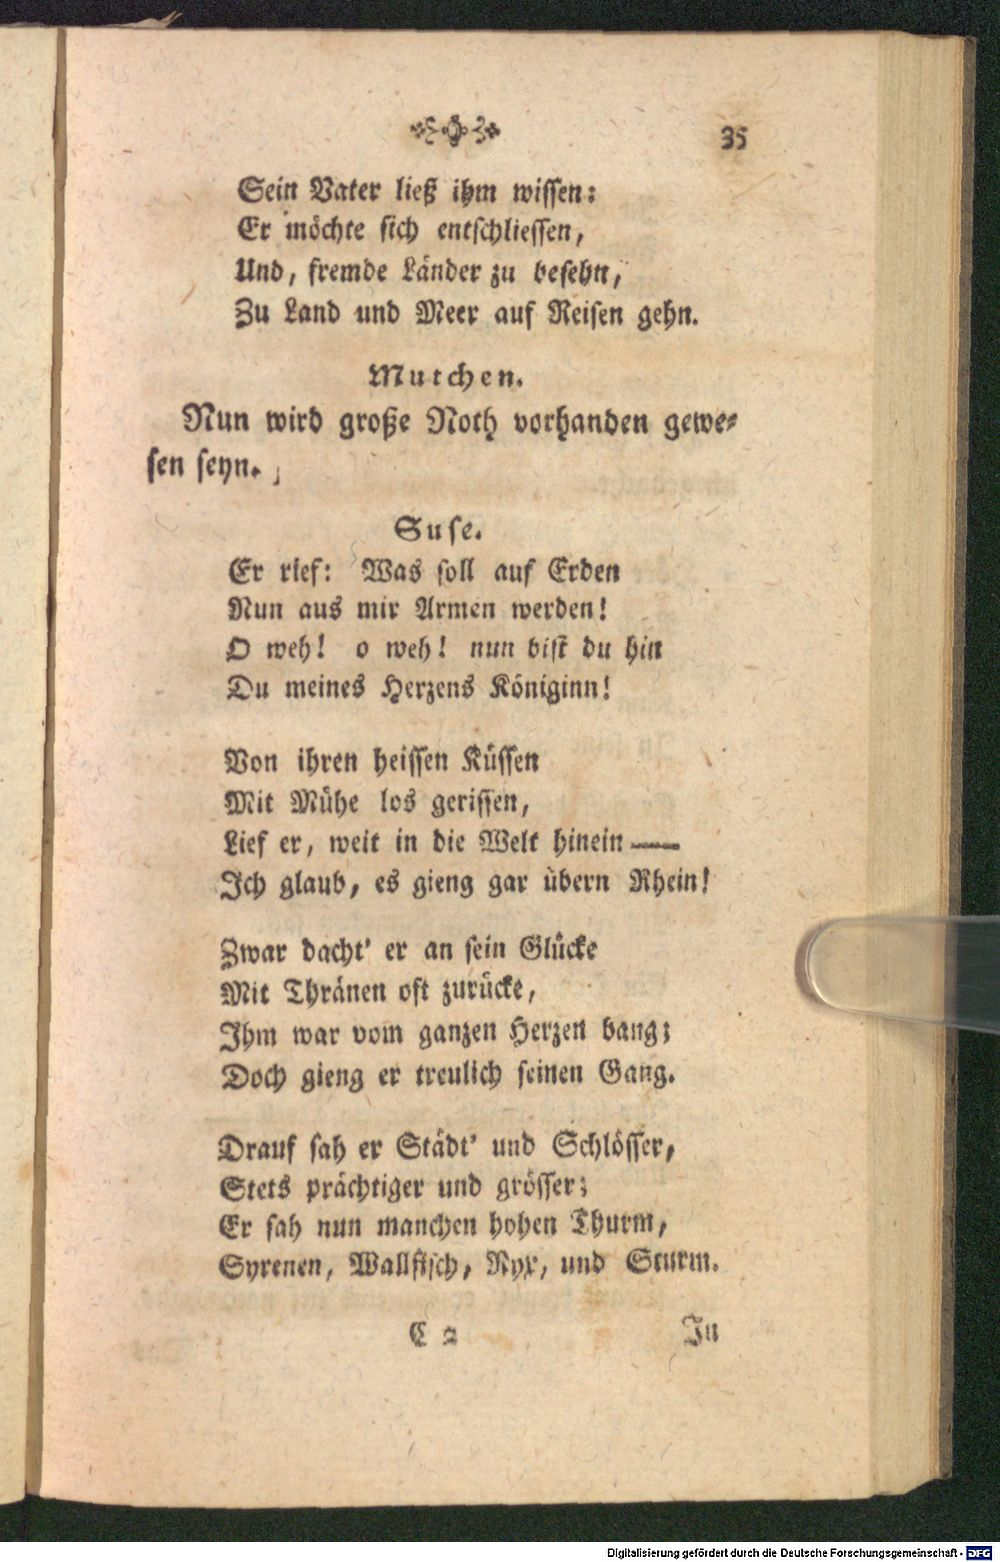 35
Sein Vater ließ ihm wissen:
Er möchte sich entschliessen,
Und, fremde Länder zu besehn,
Zu Land und Meer auf Reisen gehn.
Mutchen.
Nun wird große Noth vorhanden gewe-
sen seyn.
Suse.
Er rief: Was soll auf Erden
Nun aus mir Armen werden!
O weh! o weh! nun bist du hin
Du meines Herzens Königinn!
Von ihren heissen Küssen
Mit Mühe los gerissen,
Lief er, weit in die Welt hinein —
Ich glaub, es gieng gar übern Rhein!
Zwar dacht' er an sein Glücke
Mit Thränen oft zurücke,
Ihm war vom ganzen Herzen bang;
Doch gieng er treulich seinen Gang.
Drauf sah er Städt' und Schlösser,
Stets prächtiger und grösser;
Er sah nun manchen hohen Thurm,
Syrenen, Wallfisch, Nyx, und Sturm.
C 2 In
Digitalisierung gefördert durch die Deutsche Forschungsgemeinschaft - DFG